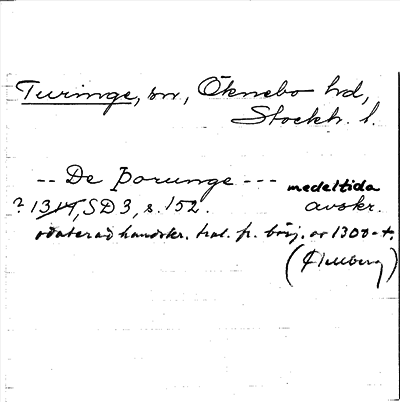 Turinge, sn, Öknebo hd,
Stockh. l.
-- De Þorunge --- medeltida
? 1314, SD 3, s. 152. avskr.
odaterad handskr. trol. fr. börj. av 1300-t.